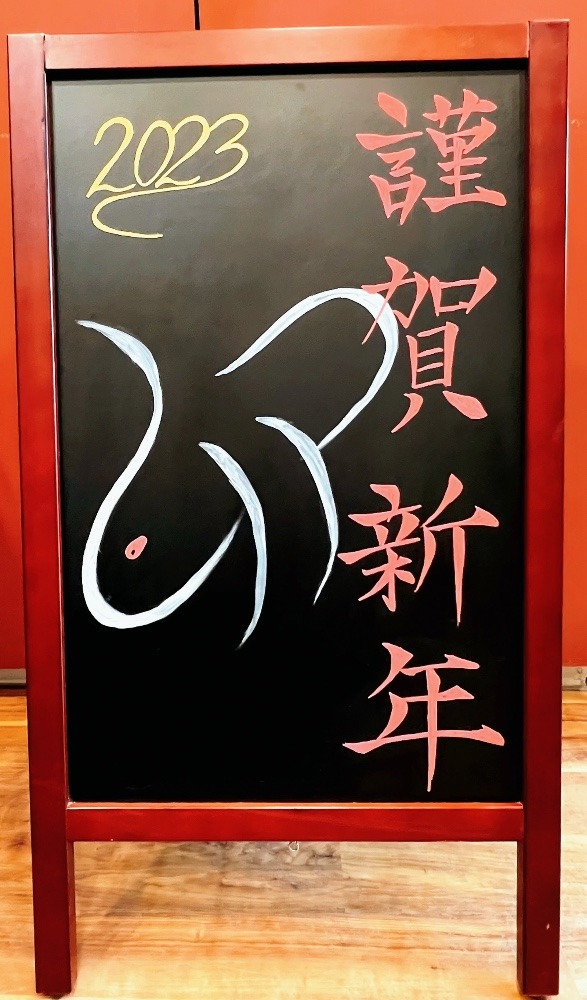 2023
謹賀新年